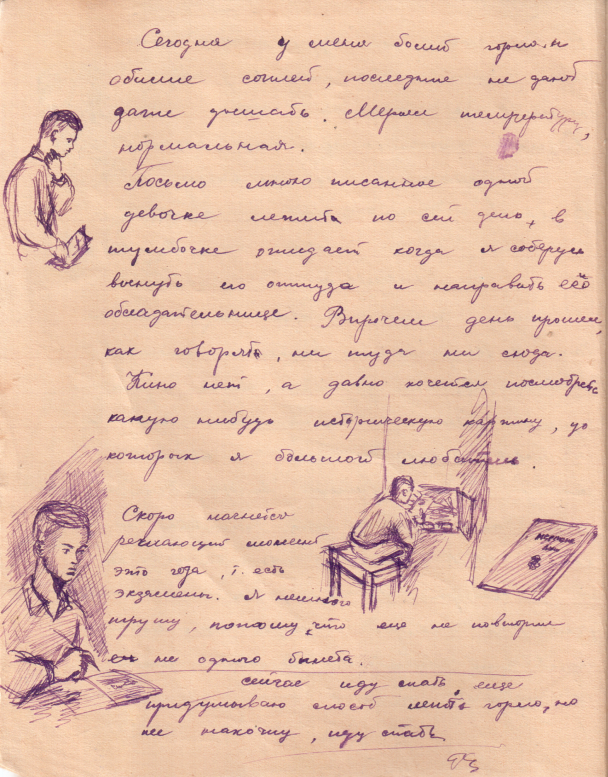 Сегодня у меня болит горло и
обилие соплей, последние не дают
даже дышать. Мерял температуру,
нормальная.
Письмо мною писанное одной
девочке лежит по сей день, в
тумбочке ожидает когда я соберусь
вынуть его оттуда и направить её
обладательнице. Впрочем день прошел,
как говорять, ни туда ни сюда.
Кино нет, а давно хочется посмотреть
какую нибудь историческую картину, до
которых я большой любитель.
Скоро начнется
решающий момент
это года, т. есть
экзамены. Я немного
трушу, потому, что еще не повторил
не одного билета.
Сейчас иду спать, еще
придумываю способ лечить горло, но
не нахожу, иду спать